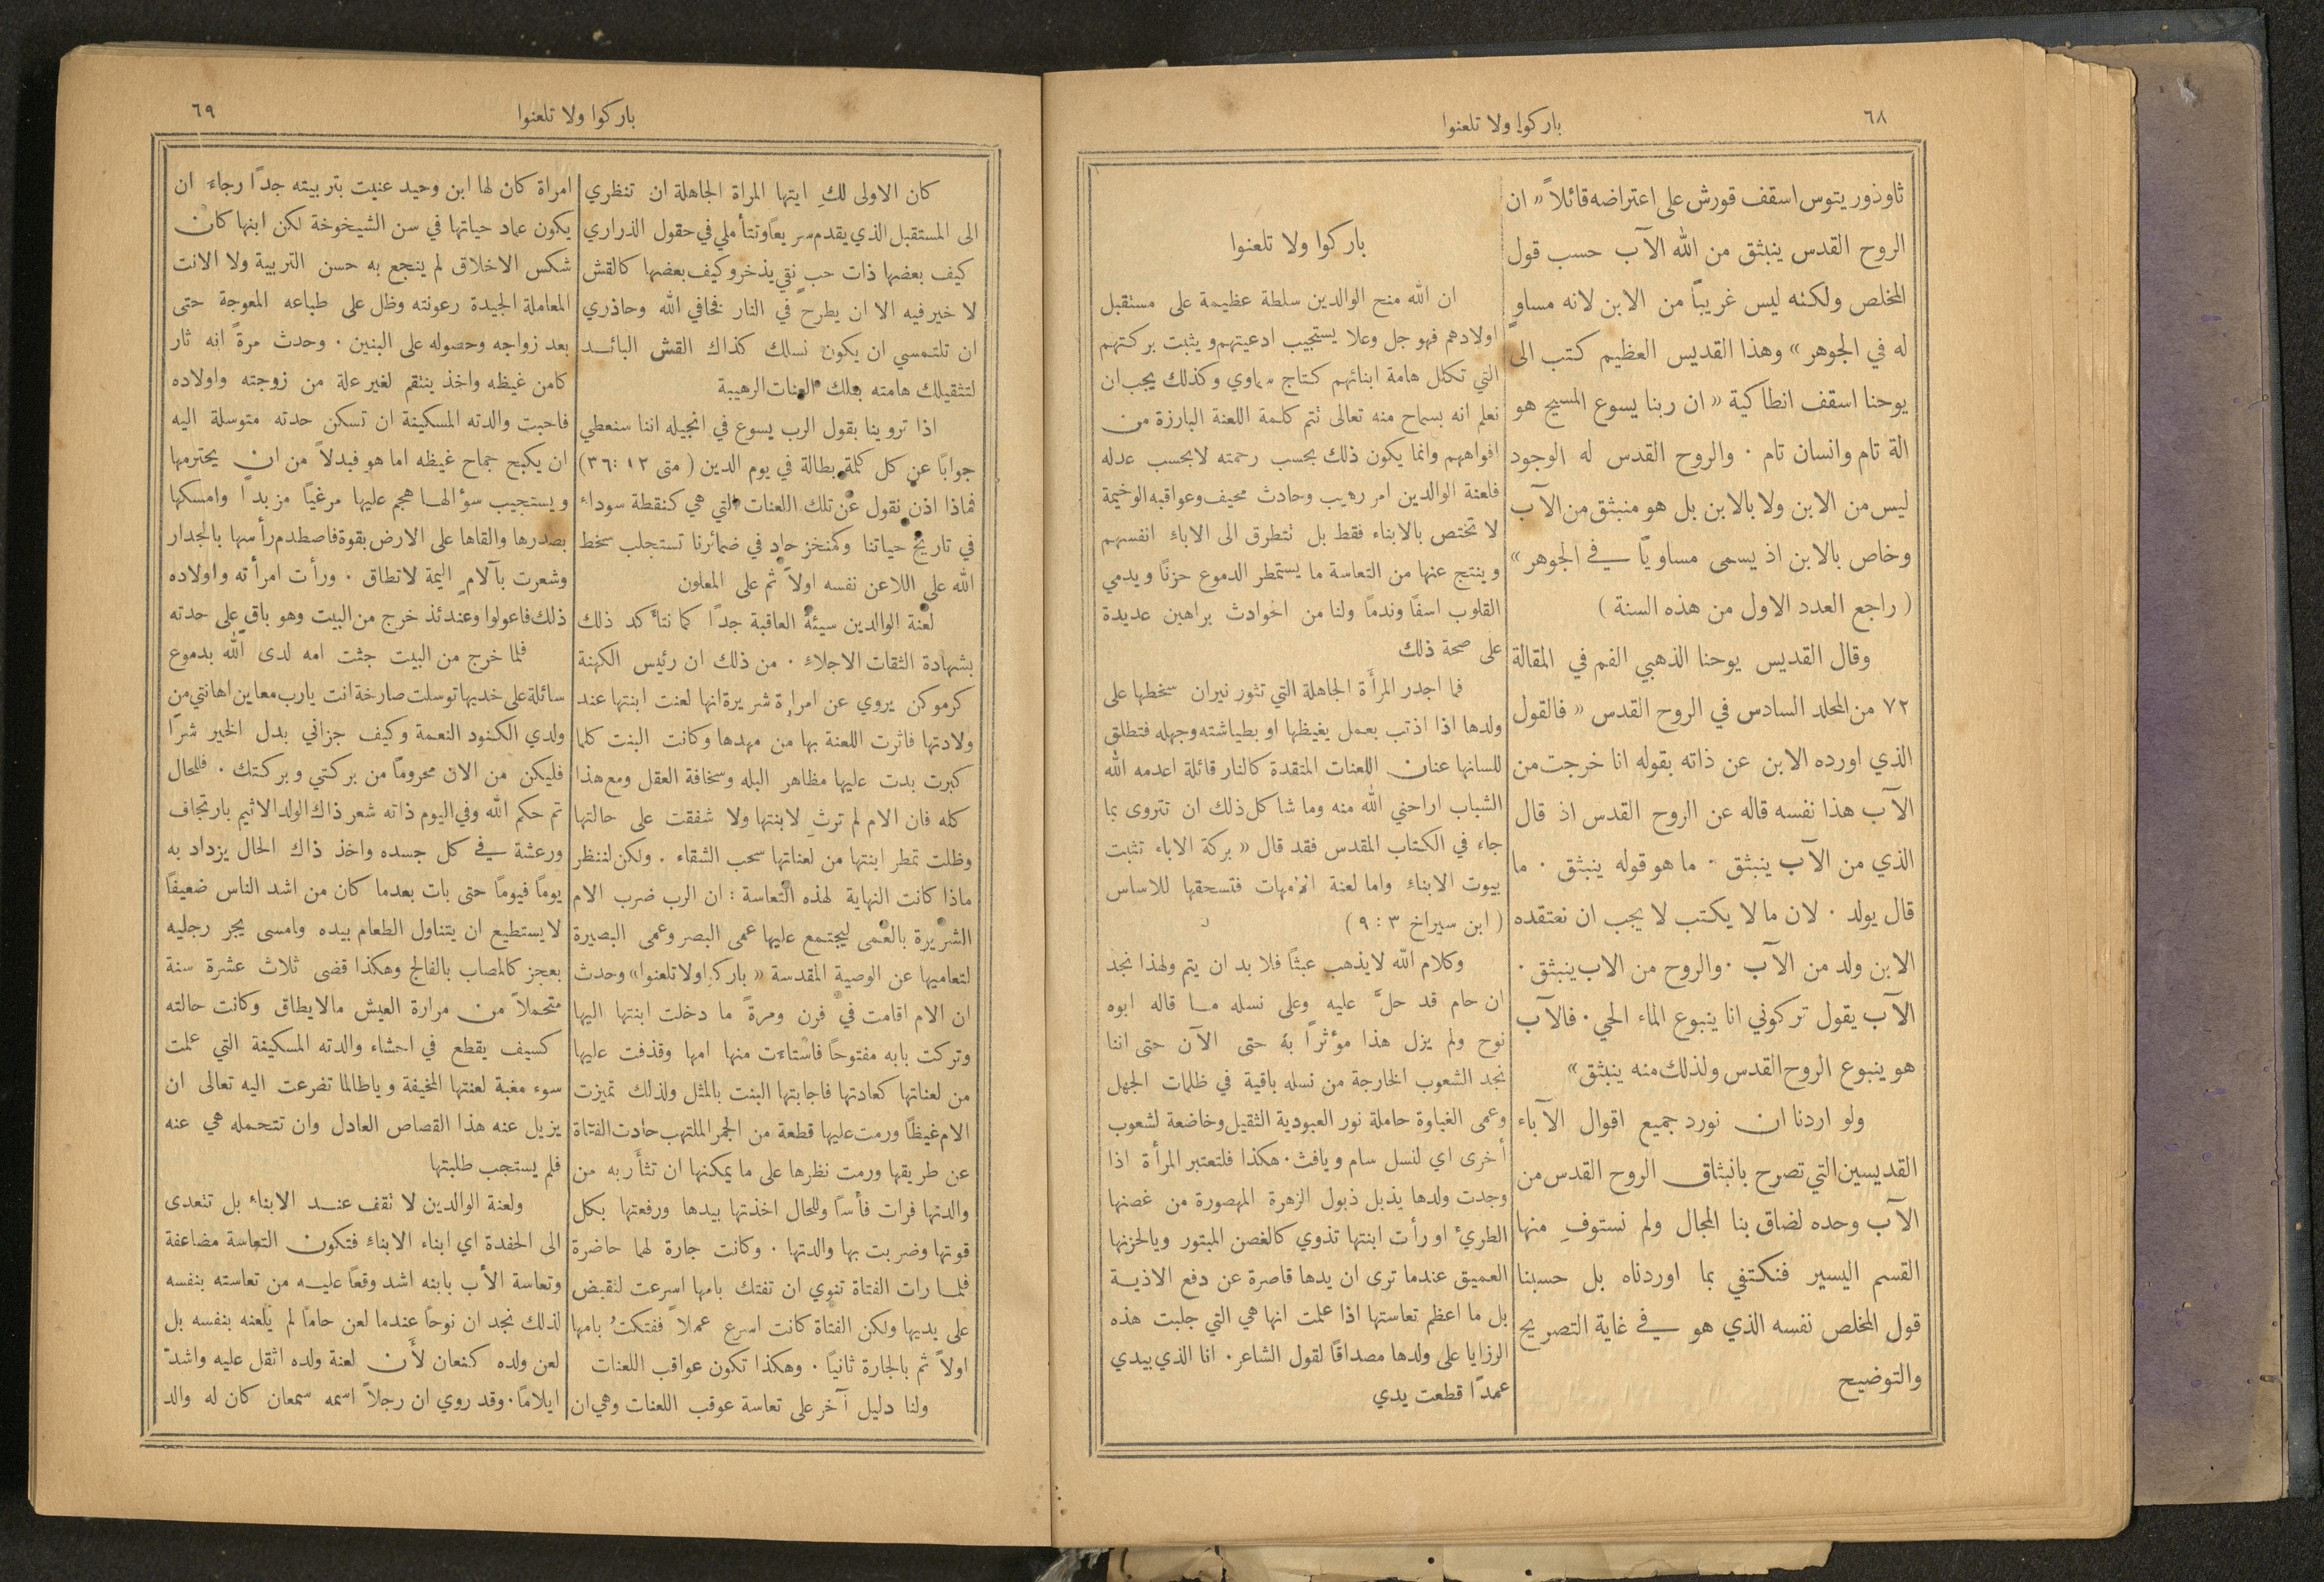 ٦٨
باركوا ولا تلعنوا
ثاوذوريتوس اسقف قورش على اعتراضه قائلاً « ان
الروح القدس ينبثق من الله الآب حسب قول
المخلص ولكنه ليس غريبًا من الابن لانه مساوٍ
له في الجوهر » وهذا القديس العظيم كتب الى
يوحنا اسقف انطاكية « ان ربنا يسوع المسيح هو
الة تام وانسان تام . والروح القدس له الوجود
ليس من الابن ولا بالابن بل هو منبثق من الآب
وخاص بالابن اذ يسمى مساويًا في الجوهر »
( راجع العدد الاول من هذه السنة )
وقال القديس يوحنا الذهبي الفم في المقالة
٧٢ من المجلد السادس في الروح القدس « فالقول
الذي اورده الابن عن ذاته بقوله انا خرجت من
الآب هذا نفسه قاله عن الروح القدس اذ قال
الذي من الآب ينبثق . ما هو قوله ينبثق . ما
قال يولد . لان ما لا يكتب لا يجب ان نعتقده
الابن ولد من الآب . والروح من الاب ينبثق .
الآب يقول تركوني انا ينبوع الماء الحي . فالآب
هو ينبوع الروح القدس ولذلك منه ينبثق »
ولو اردنا ان نورد جميع اقوال الآباء
القديسين التي تصرح بانبثاق الروح القدس من
الآب وحده لضاق بنا المجال ولم نستوفِ منها
القسم اليسير فنكتفي بما اوردناه بل حسبنا
قول المخلص نفسه الذي هو في غاية التصريح
والتوضيح
باركوا ولا تلعنوا
ان الله منح الوالدين سلطة عظيمة على مستقبل
اولادهم فهو جل وعلا يستجيب ادعيتهم ويثبت بركتهم
التي تكلل هامة ابنائهم كتاج سماوي وكذلك يجب ان
نعلم انه بسماح منه تعالى تتم كلمة اللعنة البارزة من
افواههم وانما يكون ذلك بحسب رحمته لا بحسب عدله
فلعنة الوالدين امر رهيب وحادث مخيف وعواقبه الوخيمة
لا تختص بالابناء فقط بل تتطرق الى الاباء انفسهم
وينتج عنها من التعاسة ما يستمطر الدموع حزنًا ويدمي
القلوب اسفًا وندمًا ولنا من الحوادث براهين عديدة
على صحة ذلك
فما اجدر المرأة الجاهلة التي تثور نيران سخطها على
ولدها اذا اذنب بعمل يغيظها او بطياشته وجهله فتطلق
للسانها عنان اللعنات المتقدة كالنار قائلة اعدمه الله
الشباب اراحني الله منه وما شاكل ذلك ان تتروى بما
جاء في الكتاب المقدس فقد قال « بركة الاباء تثبت
بيوت الابناء واما لعنة الامهات فتسحقها للاساس
( ابن سيراخ ٣ : ٩ )
وكلام الله لا يذهب عبثًا فلا بد ان يتم ولهذا نجد
ان حام قد حلَّ عليه وعلى نسله ما قاله ابوه
نوح ولم يزل هذا مؤثرًا به حتى الآن حتى اننا
نجد الشعوب الخارجة من نسله باقية في ظلمات الجهل
وعمى الغباوة حاملة نور العبودية الثقيل وخاضعة لشعوب
أخرى اي لنسل سام ويافث . هكذا فلتعتبر المرأة اذا
وجدت ولدها يذبل ذبول الزهرة المهصورة من غصنها
الطريء او رأت ابنتها تذوي كالغصن المبتور ويالحزنها
العميق عندما ترى ان يدها قاصرة عن دفع الاذية
بل ما اعظم تعاستها اذا علمت انها هي التي جلبت هذه
الرزايا على ولدها مصداقًا لقول الشاعر . انا الذي بيدي
عمدًا قطعت يدي
باركوا ولا تلعنوا
٦٩
كان الاولى لكِ ايتها المراة الجاهلة ان تنظري
الى المستقبل الذي يقدم سريعًا وتتأملي في حقول الذراري
كيف بعضها ذات حب نقي يذخر وكيف بعضها كالقش
لا خير فيه الا ان يطرح في النار فخافي الله وحاذري
ان تلتمسي ان يكون نسلك كذاك القش البائد
لتثقيلك هامته بتلك اللعنات الرهيبة
اذا تروينا بقول الرب يسوع في انجيله اننا سنعطي
جوابًا عن كل كلمة بطالة في يوم الدين ( متى ١٢ : ٣٦ )
فماذا اذن نقول عن تلك اللعنات التي هي كنقطة سوداء
في تاريخ حياتنا وكمنخز حاد في ضمائرنا تستجلب سخط
الله على اللاعن نفسه اولاً ثم على المعلون
لعنة الوالدين سيئة العاقبة جدًا كما نتأكد ذلك
بشهادة الثقات الاجلاء . من ذلك ان رئيس الكهنة
كرموكن يروي عن امراة شريرة انها لعنت ابنتها عند
ولادتها فاثرت اللعنة بها من مهدها وكانت البنت كلما
كبرت بدت عليها مظاهر البله وسخافة العقل ومع هذا
كله فان الام لم ترثِ لابنتها ولا شفقت على حالتها
وظلت تمطر ابنتها من لعناتها سحب الشقاء . ولكن لننظر
ماذا كانت النهاية لهذه التعاسة : ان الرب ضرب الام
الشريرة بالعمى ليجتمع عليها عمى البصر وعمى البصيرة
لتعاميها عن الوصية المقدسة « باركوا ولا تلعنوا » وحدث
ان الام اقامت في فرن ومرةً ما دخلت ابنتها اليها
وتركت بابه مفتوحًا فاستاءت منها امها وقذفت عليها
من لعناتها كعادتها فاجابتها البنت بالمثل ولذلك تميزت
الام غيظًا ورمت عليها قطعة من الجمر الملتهب حادت الفتاة
عن طريقها ورمت نظرها على ما يمكنها ان تثأر به من
والدتها فرات فأسًا وللحال اخذتها بيدها ورفعتها بكل
قوتها وضربت بها والدتها . وكانت جارة لهما حاضرة
فلما رات الفتاة تنوي ان تفتك بامها اسرعت لتقبض
على يديها ولكن الفتاة كانت اسرع عملاً ففتكت بامها
اولاً ثم بالجارة ثانيًا . وهكذا تكون عواقب اللعنات
ولنا دليل آخر على تعاسة عوقب اللعنات وهي ان
امراة كان لها ابن وحيد عنيت بتربيته جدًا رجاء ان
يكون عماد حياتها في سن الشيخوخة لكن ابنها كان
شكس الاخلاق لم ينجع به حسن التربية ولا الانت
المعاملة الجيدة رعونته وظل على طباعه المعوجة حتى
بعد زواجه وحصوله على البنين . وحدث مرةً انه ثار
كامن غيظه واخذ ينتقم لغير علة من زوجته واولاده
فاحبت والدته المسكينة ان تسكن حدته متوسلة اليه
ان يكبح جماح غيظه اما هو فبدلاً من ان يحترمها
ويستجيب سؤالها هجم عليها مرغيًا مزبدًا وامسكها
بصدرها والقاها على الارض بقوة فاصطدم رأسها بالجدار
وشعرت بآلامٍ اليمة لا تطاق . ورأت امرأته واولاده
ذلك فاعولوا وعندئذ خرج من البيت وهو باق على حدته
فلما خرج من البيت جثت امه لدى الله بدموع
سائلة على خديها توسلت صارخة انت يارب معاين اهانتي من
ولدي الكنود النعمة وكيف جزاني بدل الخير شرًا
فليكن من الان محرومًا من بركتي وبركتك . فللحال
تم حكم الله وفي اليوم ذاته شعر ذاك الولد الاثيم بارتجاف
ورعشة في كل جسده واخذ ذاك الحال يزداد به
يومًا فيومًا حتى بات بعدما كان من اشد الناس ضعيفًا
لا يستطيع ان يتناول الطعام بيده وامسى يجر رجليه
بعجز كالمصاب بالفالج وهكذا قضى ثلاث عشرة سنة
متحملاً من مرارة العيش مالا يطاق وكانت حالته
كسيف يقطع في احشاء والدته المسكينة التي علمت
سوء مغبة لعنتها المخيفة وياطالما تضرعت اليه تعالى ان
يزيل عنه هذا القصاص العادل وان تتحمله هي عنه
فلم يستجب طلبتها
ولعنة الوالدين لا تقف عند الابناء بل تتعدى
الى الحفدة اي ابناء الابناء فتكون التعاسة مضاعفة
وتعاسة الأب بابنه اشد وقعًا عليه من تعاسته بنفسه
لذلك نجد ان نوحًا عندما لعن حامًا لم يلعنه بنفسه بل
لعن ولده كنعان لأن لعنة ولده اثقل عليه واشدّ
ايلامًا . وقد روي ان رجلاً اسمه سمعان كان له والد